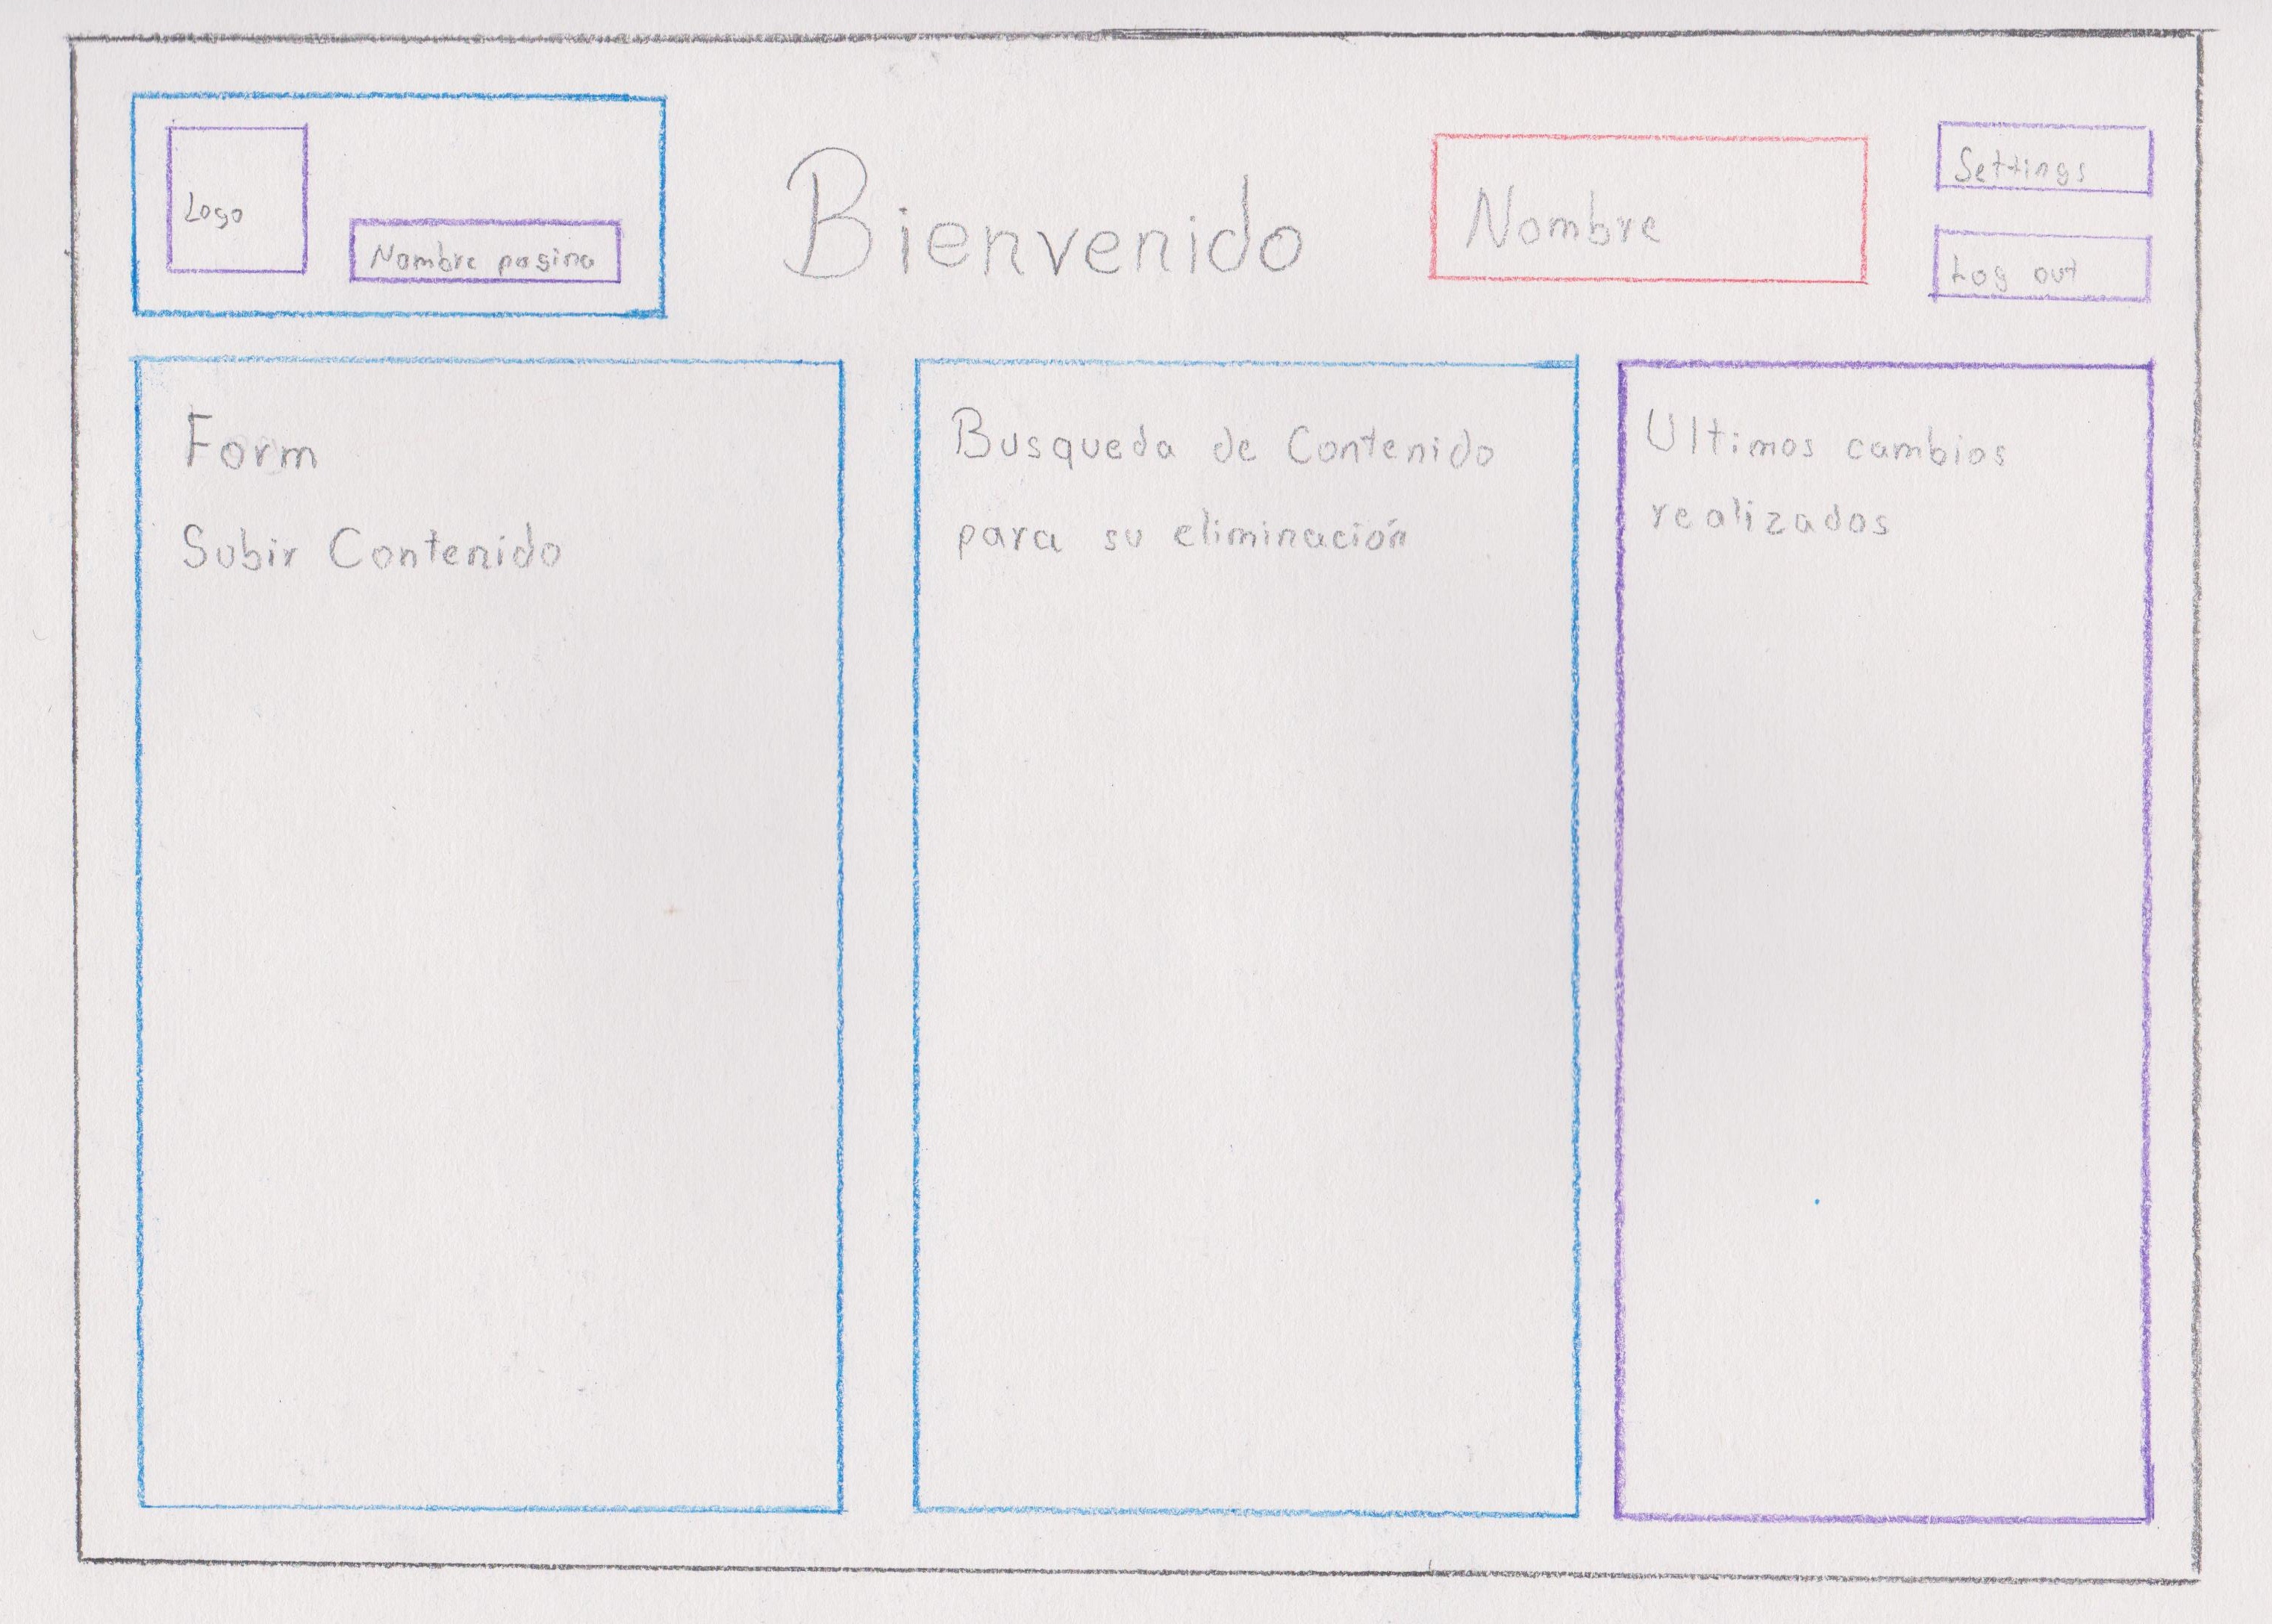 Logo
Nombre pagina
Bienvenido
Nombre
Settings
Log out
Form
Subir Contenido
Busqueda de Contenido
para su eliminación
Ultimos cambios
realizados